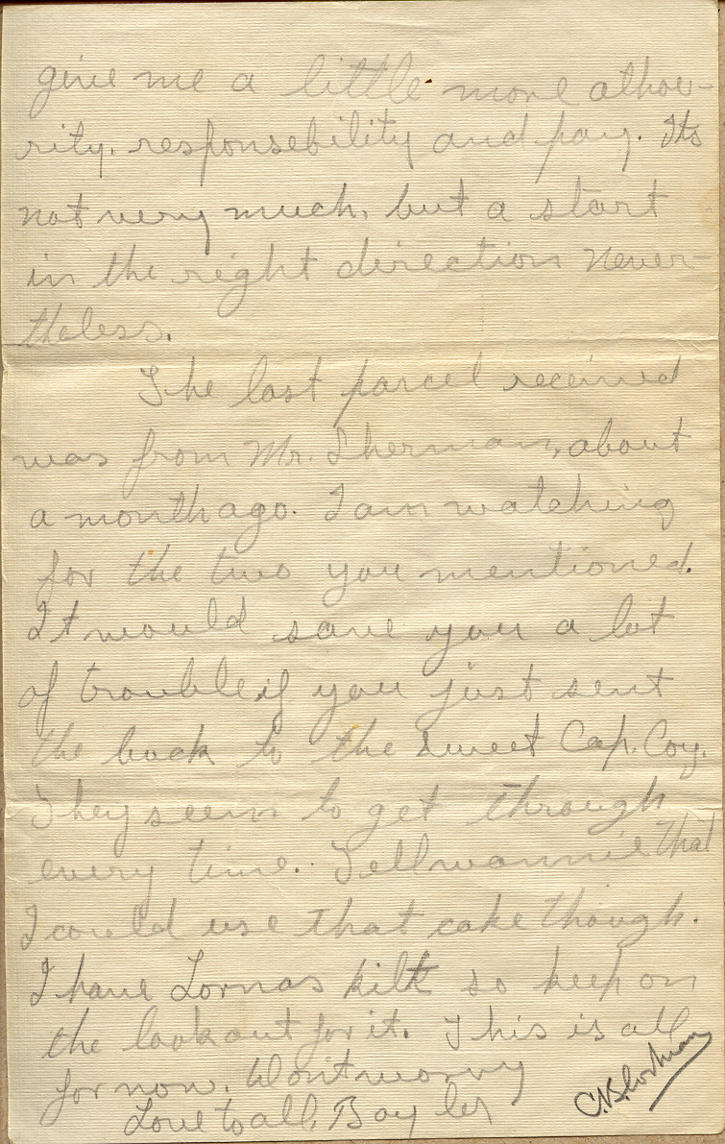 give me a little more athou-
rity. responsebility and pay. Its
not very much, but a start
in the right direction never-
theless.
The last parcel received
was from Mr. Sherman, about
a month ago. I am watching
for the two you mentioned.
It would save you a lot
of trouble if you just sent
the buck to the Sweet Cap. Coy.
They seem to get through
every time. Tell wannie that
I could use that cake though.
I have Lornas kilt so keep on
the lookout for it. This is all
for now. Wont worry
Love to all,